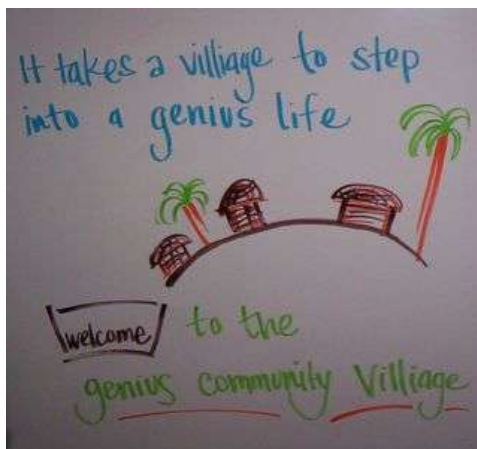 It takes a villiage to step
into a genius life
welcome to the
genius community Villiage